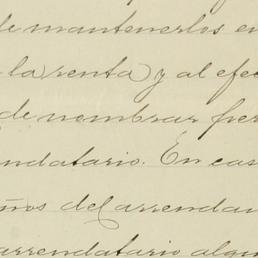 de mantenerlos en
la renta y al efec
de nombrar per
ndatario. En cas
ños del arrendam
arrendatario algu